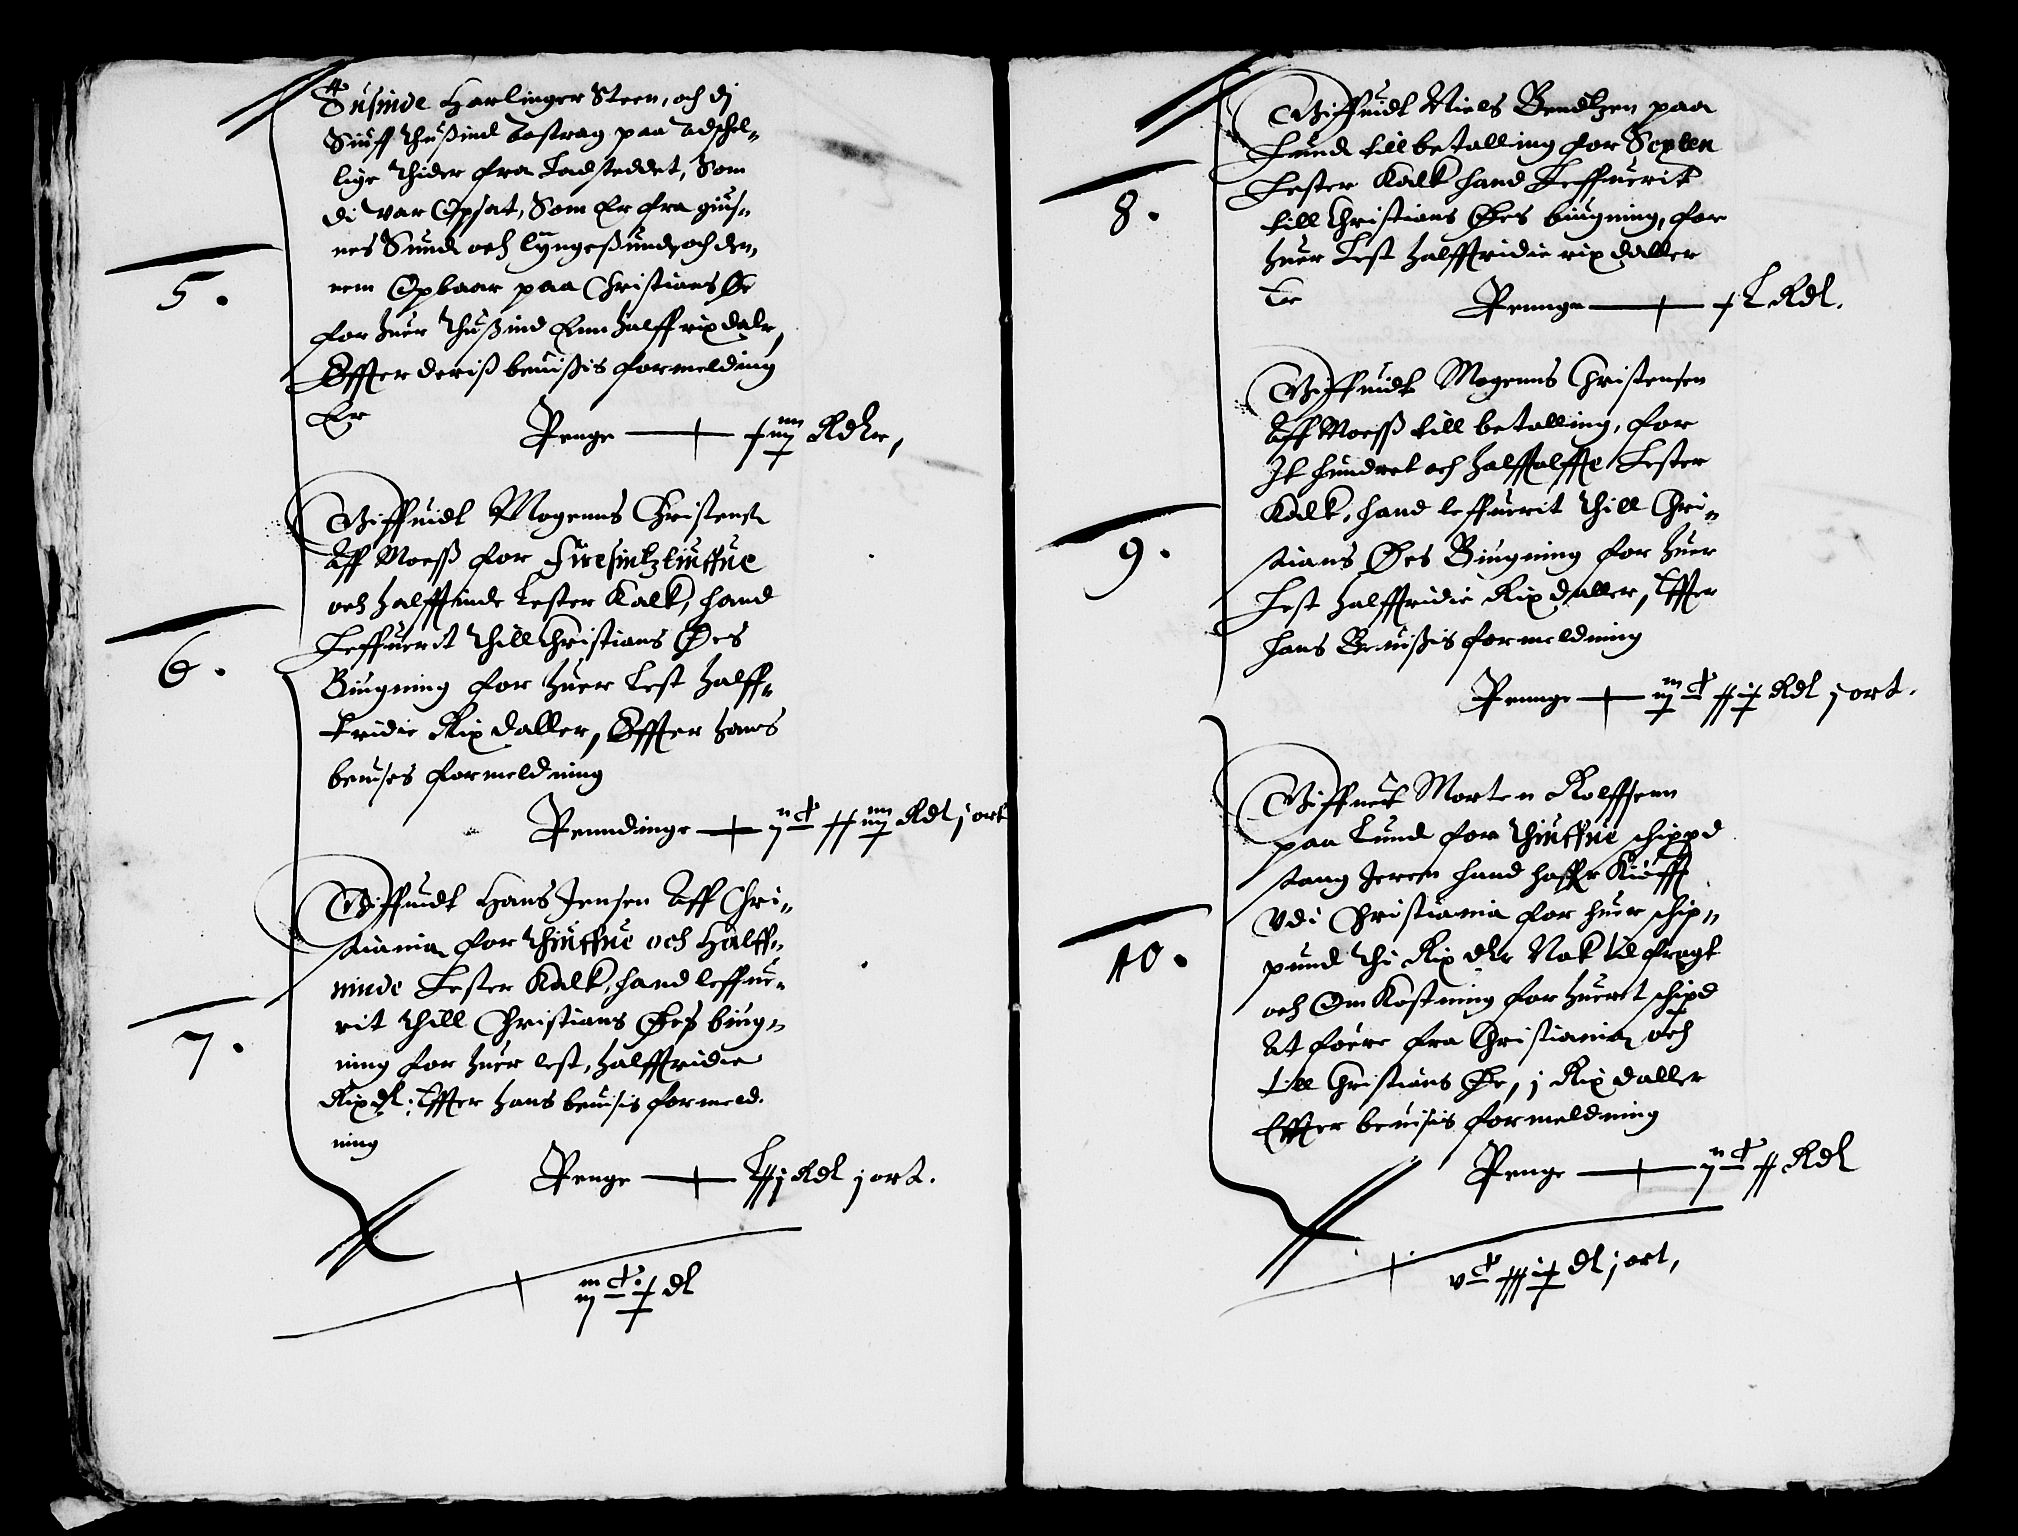 Tusinde Harlinger Steen, och di
Siuff thußind Tostrag paa adschel-
lige thider fra Ladsteddet, Som
di var Opsat, Som Er fra gius-
nes Sund och lyngeßund, och den-
nem Opbaar paa Christians Øe
for huer thußind Enn halff rixdalr,
Effter deriß beuißis formelding
Er
5. Penge — Rdlr,
Giffuidt Mogenns Christens
Aff Moesß for firesintztiuffue
och halffinde Lester Kalk, hand
Leffuerit thill Christians Øes
Biugning for huer Lest halff-
tridie Rixdaller, Effter hans
beuises formeldning
6. Penndinge — Rdl j ort
Giffuidt Hans Jensen Aff Chri-
stiania for thiuffue och Halff-
ninde Lester Kalk, hand leffue-
rit thill Christians Øes biug-
ning for huer lest, halfftridie
Rixdl: Effter hans beuisis formeld-
ning
7. Penge — Rdl j ort.
dl
Giffuidt Niels Bendtzen paa
Lund till betalling for Sexten
Lester Kalk hand Leffuerit
till Christians Øes biugning, for
huer Lest halfftridie rixdaller
Er
8. Pennge — Rdl.
Giffuidt Mogenns Christensen
Aff Moesß till betalling, for
It hundret och halffolffte Lester
Kalk, hand leffuerit thill Chri-
stians Øes Biugning for huer
Lest halfftridie Rixdaller, Effter
hans Beuißis formeldning
9. Pennge — Rdl j ort.
Giffuet Morten Rolffsenn
paa Lund for thiuffue schippd
stang Jeren hand haffr Kiøfft
Vdi Christiania for huer schip-
pund thi Rixdlr Nok til fragt
och Omkostning for huert schipd
At føere fra Christiania och
till Christians Øe, j Rixdaller
Effter beuisis formeldning
10. Penge — Rdl
dl j ort,